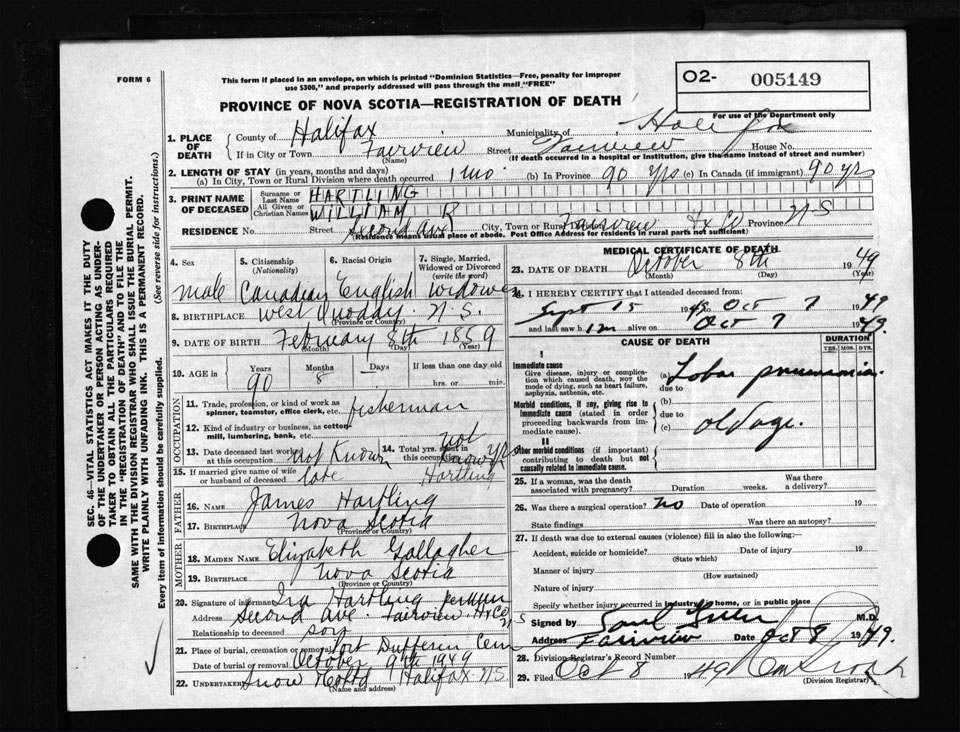 FORM 6
This form if placed in an envelope, on which is printed "Dominion Statistics—Free, penalty for improper
use $300," and properly addressed will pass through the mail "FREE"
O2- 005149
PROVINCE OF NOVA SCOTIA—REGISTRATION OF DEATH
For use of the Department only
1. PLACE OF DEATH County of Halifax Municipality of Halifax
If in City or Town Fairview (Name) Street Fairview House No.
(If death occurred in a hospital or institution, give the name instead of street and number)
2. LENGTH OF STAY (in years, months and days)
(a) In City, Town or Rural Division where death occurred 1 mo. (b) In Province 90 yrs (c) In Canada (if immigrant) 90 yrs
3. PRINT NAME OF DECEASED Surname or Last Name HARTLING
All Given or Christian Names WILLIAM R
RESIDENCE No. Street Second Ave City, Town or Rural Division Fairview Hx Co Province N S
(Residence means usual place of abode. Post Office Address for residents in rural parts not sufficient)
4. Sex male
5. Citizenship (Nationality) Canadian
6. Racial Origin English
7. Single, Married, Widowed or Divorced (write the word) widower
8. BIRTHPLACE West Quoddy. N.S.
(Province or Country)
9. DATE OF BIRTH February 8th 1859
(Month) (Day) (Year)
10. AGE in Years 90 Months 8 Days — If less than one day old hrs. or min.
OCCUPATION
11. Trade, profession, or kind of work as spinner, teamster, office clerk, etc. fisherman
12. Kind of industry or business, as cotton mill, lumbering, bank, etc.
13. Date deceased last worked at this occupation not Known
14. Total yrs. spent in this occupation not Known yrs
15. If married give name of wife or husband of deceased late Hartling
FATHER
16. NAME James Hartling
17. BIRTHPLACE Nova Scotia
(Province or Country)
MOTHER
18. MAIDEN NAME Elizabeth Gallagher
19. BIRTHPLACE Nova Scotia
(Province or Country)
20. Signature of informant Ira Hartling
Address Second Ave. Fairview. Hx Co N S
Relationship to deceased son
21. Place of burial, cremation or removal Port Dufferin Cem
Date of burial or removal October 9th 1949
22. UNDERTAKER Snow Co Ltd Halifax N.S.
(Name and address)
MEDICAL CERTIFICATE OF DEATH
23. DATE OF DEATH October 8th 1949
(Month) (Day) (Year)
24. I HEREBY CERTIFY that I attended deceased from:
Sept 15 1949 to Oct 7 1949
and last saw him alive on Oct 7 1949.
CAUSE OF DEATH
DURATION
YRS. MOS. DYS.
I
Immediate cause
Give disease, injury or complication which caused death, NOT the mode of dying, such as heart failure, asphyxia, asthenia, etc.
(a) Lobar pneumonia.
due to
Morbid conditions, if any, giving rise to immediate cause (stated in order proceeding backwards from immediate cause).
(b)
due to
(c) old age.
II
Other morbid conditions (if important) contributing to death but not causally related to immediate cause.
25. If a woman, was the death associated with pregnancy? Duration weeks. Was there a delivery?
26. Was there a surgical operation? no Date of operation 19
State findings Was there an autopsy?
27. If death was due to external causes (violence) fill in also the following:—
Accident, suicide or homicide? Date of injury 19
(State which)
Manner of injury
(How sustained)
Nature of injury
Specify whether injury occurred in industry, in home, or in public place
Signed by M.D.
Address Fairview Date Oct 8 1949.
28. Division Registrar's Record Number
29. Filed Oct 8 1949
(Division Registrar)
SEC. 46—VITAL STATISTICS ACT MAKES IT THE DUTY
OF THE UNDERTAKER OR PERSON ACTING AS UNDER-
TAKER TO OBTAIN ALL THE PARTICULARS REQUIRED
IN THE "REGISTRATION OF DEATH" AND TO FILE THE
SAME WITH THE DIVISION REGISTRAR WHO SHALL ISSUE THE BURIAL PERMIT.
WRITE PLAINLY WITH UNFADING INK. THIS IS A PERMANENT RECORD.
Every item of information should be carefully supplied. (See reverse side for instructions.)